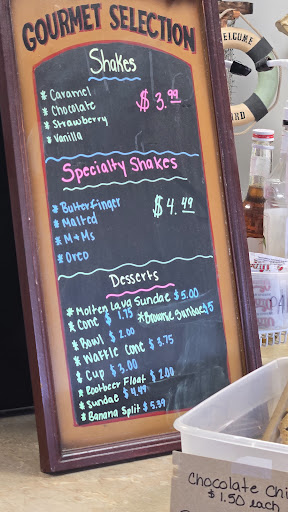 GOURMET SELECTION
Shakes
* Caramel
* Chocolate
* Strawberry
* Vanilla
$3.99
Specialty Shakes
* Butterfinger
* Malted
* M+Ms
* Oreo
$4.49
Desserts
* Molten Lava Sundae $5.00
* Cone $1.75 *Brownie Sundae $5
* Bowl $2.00
* Waffle Cone $3.75
* Cup $3.00
* Rootbeer Float $2.00
* Sundae $4.49
* Banana Split $5.99
WELCOME
Chocolate Chi
$1.50 each